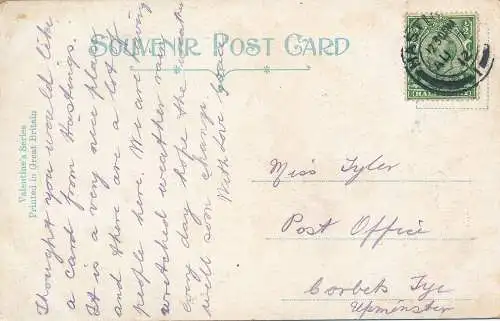 SOUVENIR POST CARD
Valentine's Series
Printed in Great Britain
Thought you would like
a card from Hastings.
It is a very nice place
and there are a lot of
people here. We are having
wretched weather rain
every day hope the weather
will soon change
With love
HASTINGS
12
HALFPENNY
Miss Tyler
Post Office
Corbets Tye
Upminster